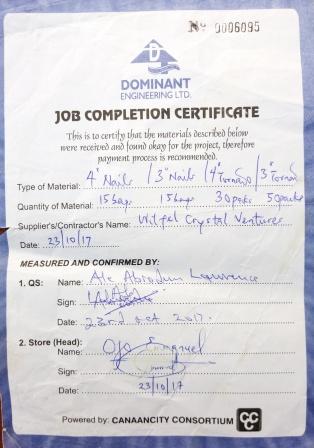 No 0006095
D
DOMINANT
ENGINEERING LTD.
JOB COMPLETION CERTIFICATE
This is to certify that the materials described below
were received and found okay for the project, therefore
payment process is recommended.
Type of Material: 4" Nails / 3" Nails / 4" Tornado / 3" Tornado
Quantity of Material: 15bags 15bags 30packs 50packs
Supplier's/Contractor's Name: Wilfel Crystal Ventures
Date: 23/10/17
MEASURED AND CONFIRMED BY:
1. QS: Name: Ale Abiodun Lawrence
Sign:
Date: 23rd Oct 2017.
2. Store (Head):
Name: Ojo Emmanuel
Sign:
Date: 23/10/17
Powered by: CANAANCITY CONSORTIUM CCC